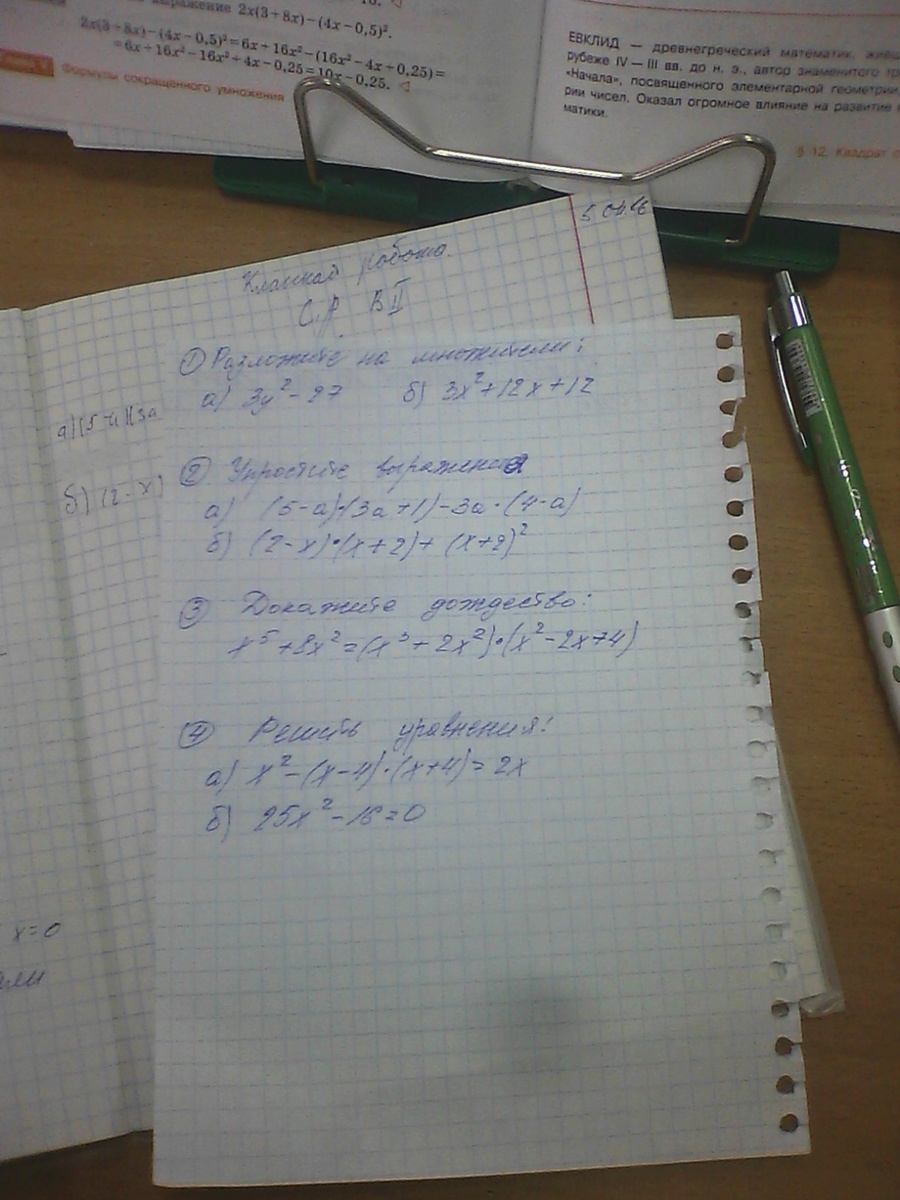 выражение 2x(3+8x)−(4x−0,5)².
2x(3+8x)−(4x−0,5)²=6x+16x²−(16x²−4x+0,25)=
=6x+16x²−16x²+4x−0,25=10x−0,25. ◁
Формулы сокращенного умножения
ЕВКЛИД — древнегреческий математик,
рубеже IV—III вв. до н. э., автор знаменитого
«Начала», посвященного элементарной геометрии
рии чисел. Оказал огромное влияние на развитие
матики.
§ 12. Квадрат
Классная работа.
С.р ВII
а)(5-а)(3а
б) (2-x)
x=0
① Разложите на множители:
а) 3y²-27 б) 3x²+12x+12
② Упростите выражения
а) (5-а)·(3а+1)-3а·(4-а)
б) (2-x)·(x+2)+(x+2)²
③ Докажите тождество:
x⁵+8x²=(x³+2x²)·(x²-2x+4)
④ Решить уравнения:
а) x²-(x-4)·(x+4)=2x
б) 25x²-16=0